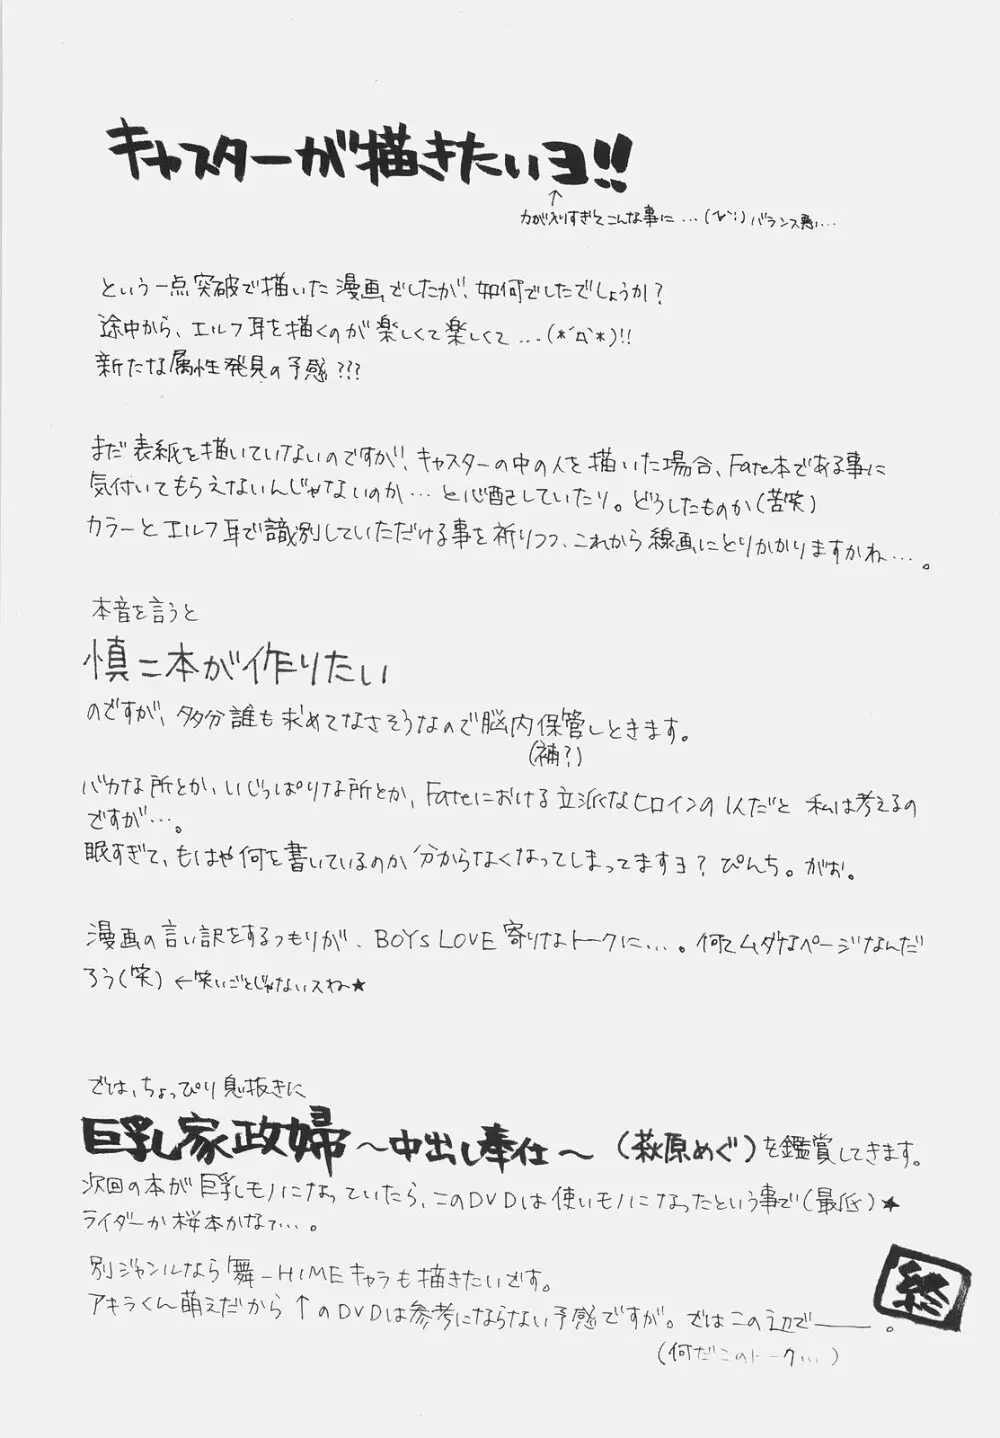 キャスターが描きたいヨ!!
↑
力が入りすぎてこんな事に…(^^;)バランス悪い…
という一点突破で描いた漫画でしたが、如何でしたでしょうか?
途中から、エルフ耳を描くのが楽しくて楽しくて…(*´Д`*)!!
新たな属性発見の予感???
まだ表紙を描いていないのですが、キャスターの中の人を描いた場合、Fate本である事に
気付いてもらえないんじゃないのか…と心配していたり。どうしたものか(苦笑)
カラーとエルフ耳で識別していただける事を祈りつつ、これから線画にとりかかりますかね…。
本音を言うと
慎二本が作りたい
のですが、多分誰も求めてなさそうなので脳内保管しときます。
(補?)
バカな所とか、いじっぱりな所とか、Fateにおける立派なヒロインの1人だと私は考えるの
ですが…。
眠すぎて、もはや何を書いているのか分からなくなってしまってますヨ?ぴんち。がお。
漫画の言い訳をするつもりが、BOYs LOVE寄りなトークに…。何てムダなページなんだ
ろう(笑)←笑いごとじゃないスね★
では、ちょっぴり息抜きに
巨乳家政婦~中出し奉仕~(萩原めぐ)を鑑賞してきます。
次回の本が巨乳モノになっていたら、このDVDは使いモノになったという事で(最低)★
ライダーか桜本かなァ…。
別ジャンルなら舞-HiMEキャラも描きたいです。
アキラくん萌えだから↑のDVDは参考にならない予感ですが。ではこの辺で――。
(何だこのトーク…)
終